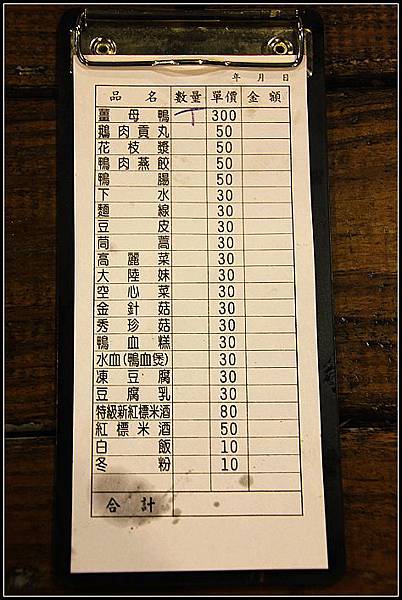 年 月 日
品名 數量 單價 金額
薑母鴨 丅 300
鵝肉貢丸 50
花枝漿 50
鴨肉燕餃 50
鴨腸 50
下水 30
麵線 30
豆皮 30
茼蒿 30
高麗菜 30
大陸妹 30
空心菜 30
金針菇 30
秀珍菇 30
鴨血糕 30
水血(鴨血煲) 30
凍豆腐 30
豆腐乳 30
特級新紅標米酒 80
紅標米酒 50
白飯 10
冬粉 10
合計